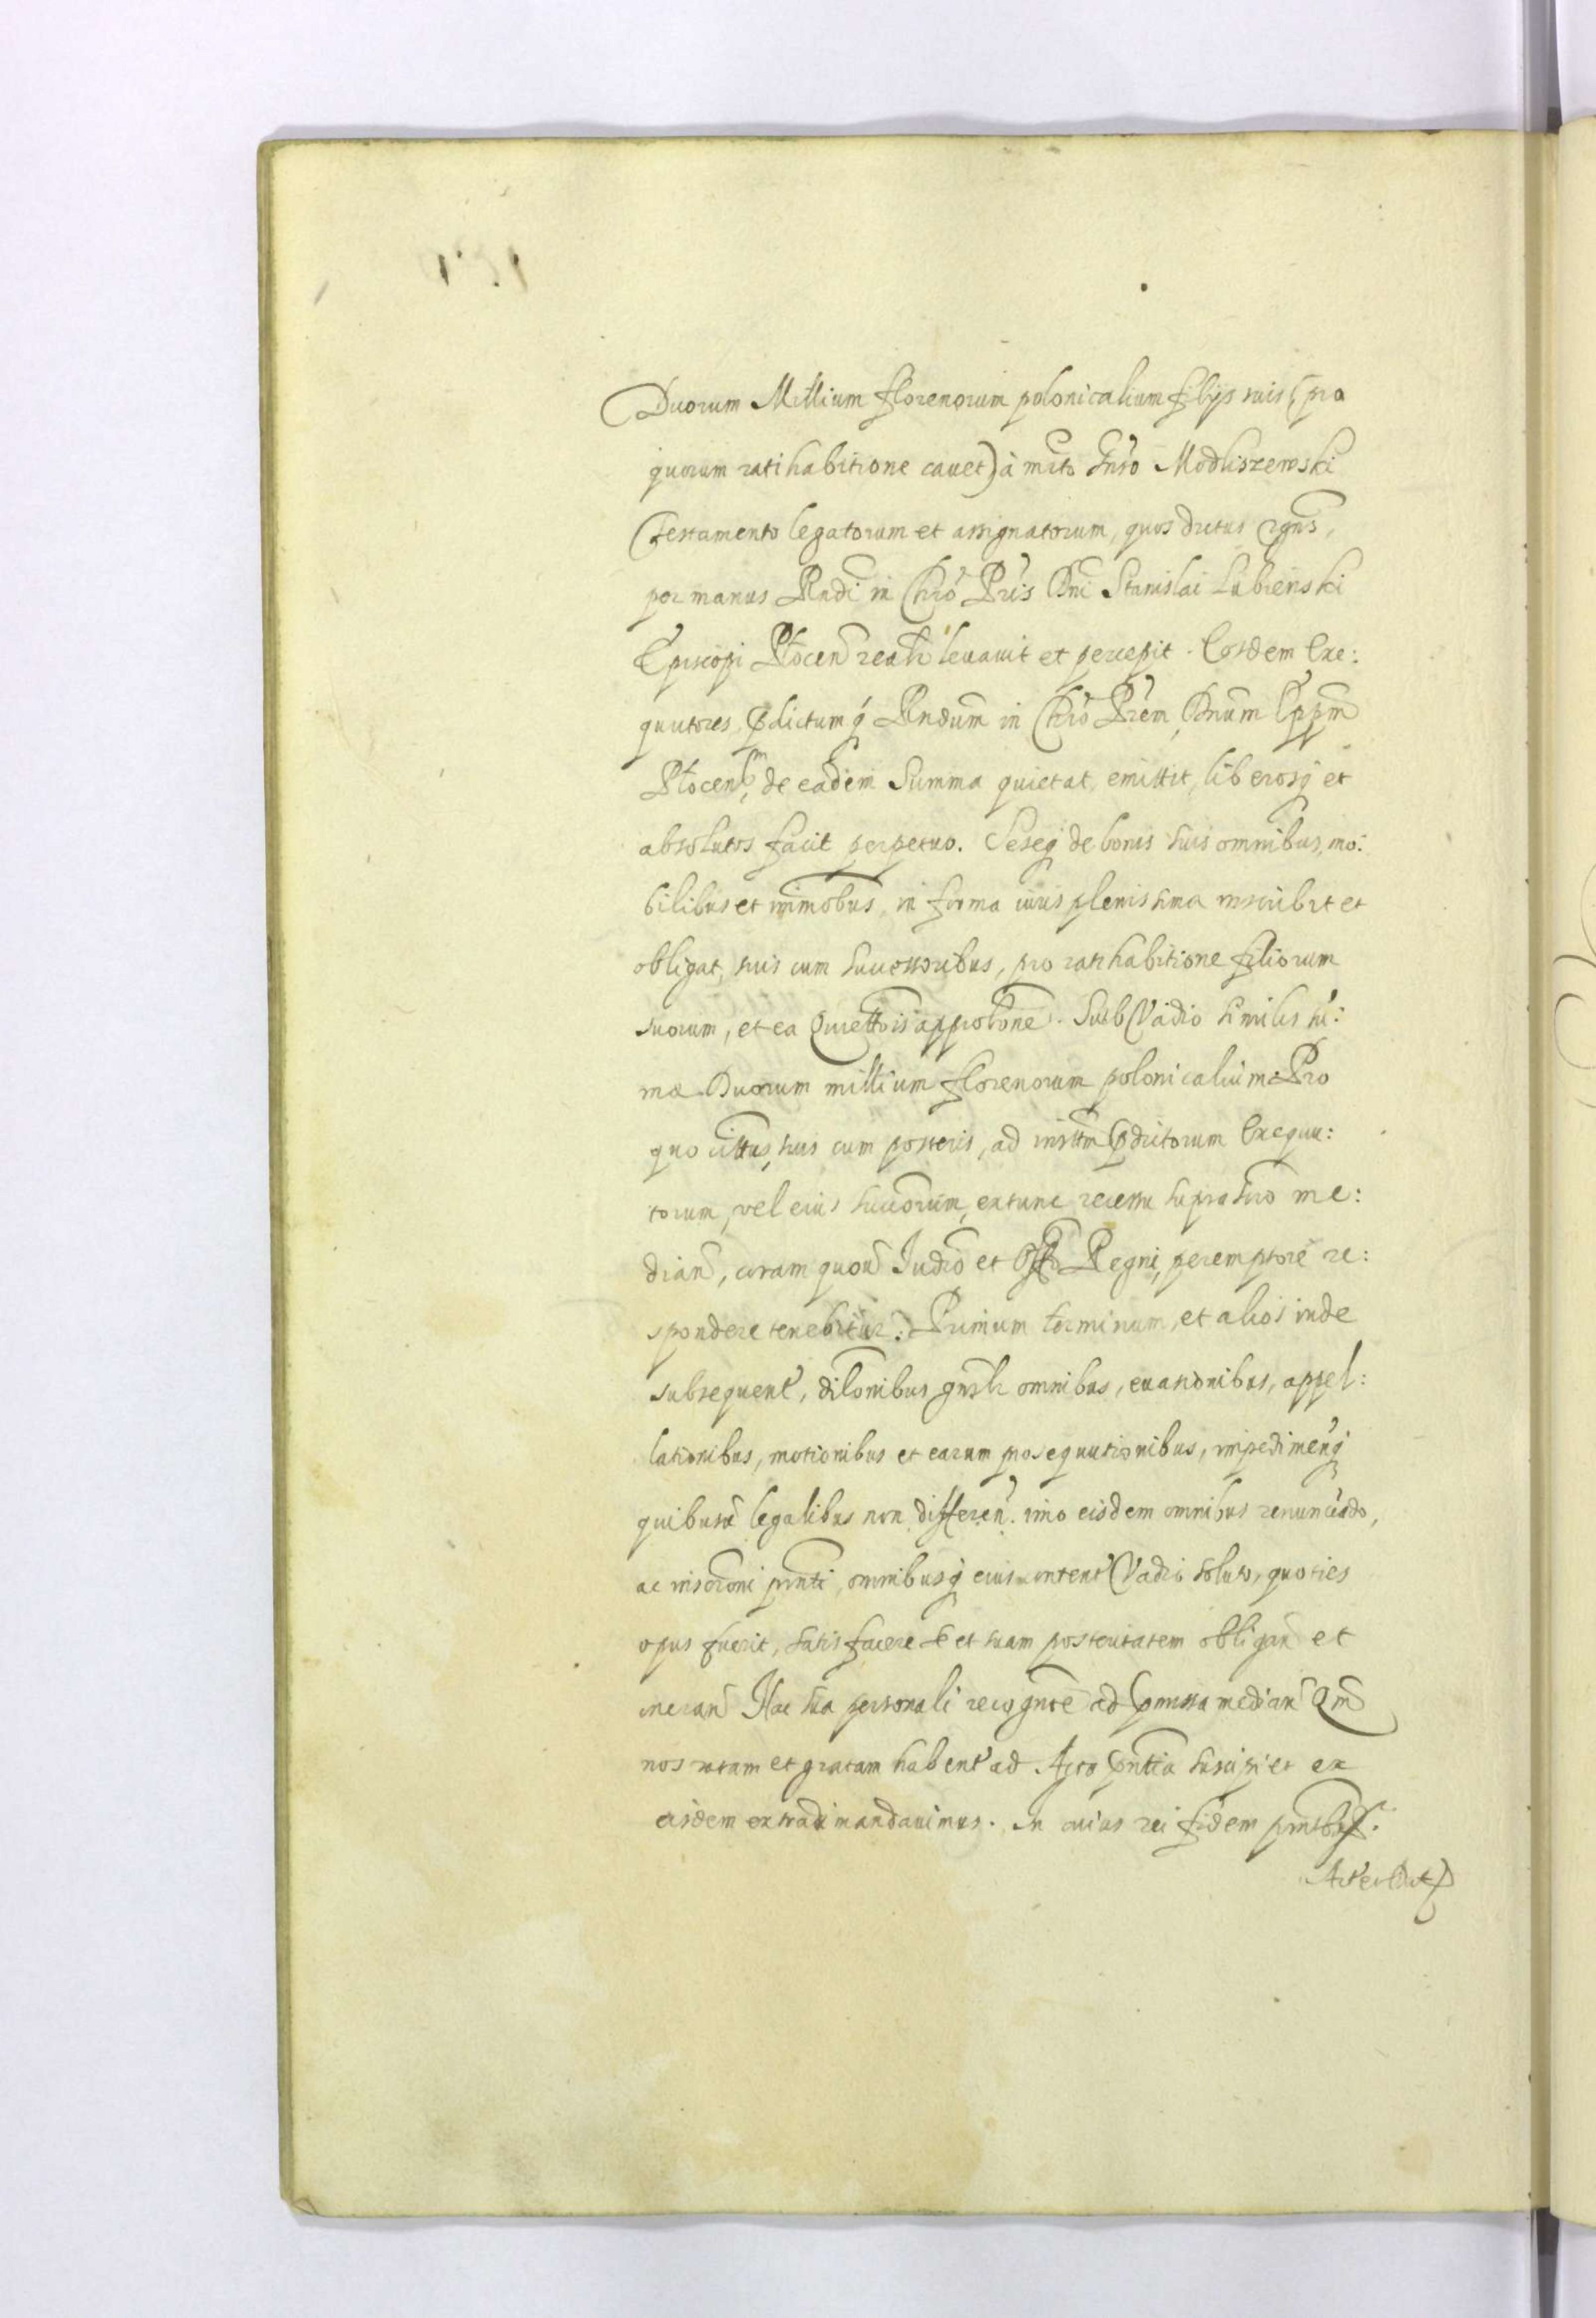 Duorum Millium florenorum polonicalium filijs suis (pro
quorum ratihabitione cauet) à mfco Modliszewski
testamento legatorum et assignatorum, quos dictus rgnŝ,
per manus Rndi in Chrô Prîs Dnî Stanislai Łubienski
Episcopi Płocen̂ realr̂ leuauit et percepit. Eosdem Exe:
quutores, p̱dictumq́ Rndum̂ in Chrô Prêm, Dnûm Eppm̂
Płocensem, de eadem Summa quietat, emittit, liberosq́ et
absolutos facit perpetuo. Seseq́ de bonis suis omnibus, mo:
bilibus et immobuŝ, in forma iuris plenissima inscribit et
obligat, suis cum successoribus, pro ratihabitione filiorum
suorum, et ea Quiettoîs approboñe. Sub Vadio similis sū:
mæ Duorum millium florenorum polonicalium. Pro
quo suis cum posteris, ad instm̂ p̱dictorum Exequu:
torum, vel eius succorûm, ex tunc recessu supra me:
dian̂, coram quou̓ Judiô et Offo Regni, peremptorê re:
spondere tenebitur. Primum terminum, et alios inde
subsequent̓, dilonîbus gnrlr̂ omnibus, euasionibus, appel:
lationibus, motionibus et earum prosequutionibus, impedimenq́
quibusu̓ legalibus non differen̂. imo eisdem omnibus renunciãdo,
ac inscroñi prnti, omnibusq́ eius content̓ Vadio soluto, quoties
opus fuerit, satisfacere se et suam posteritatem obligan̂ et
oneran̂ Hac sua personali recognoe ad p̱missa median̂ Qm̂
nos ratam et gratam habent̓ ad Acta p̱ntia suscipi et ex
eisdem extradi mandauimus. In cuius rei fidem prntbuŝ.
Act̓ et Dat̓